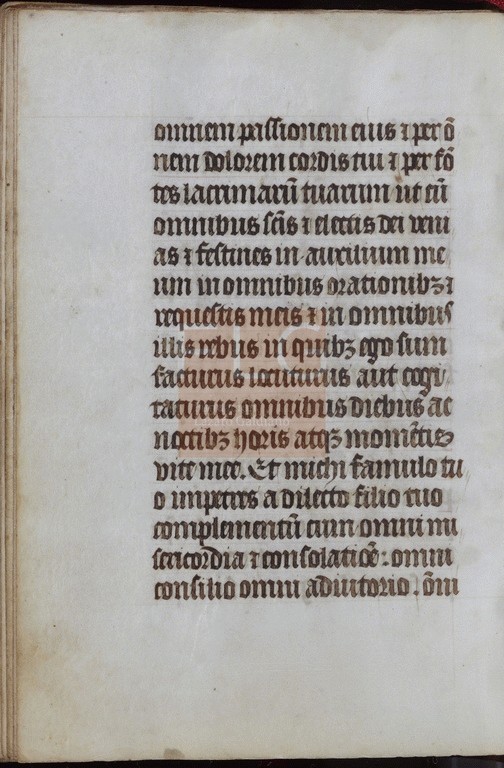 omnem passionem eius ⁊ per õ
nem dolorem cordis tui ⁊ per fõ
tes lacrimarũ tuarum ut cũ
omnibus sc̃is ⁊ electis dei veni
as ⁊ festines in auxilium me
um in omnibus orationibꝫ ⁊
requestis meis ⁊ in omnibus
illis rebus in quibꝫ ego sum
facturus locuturus aut cogi
taturus omnibus diebus ac
noctibꝫ horis atqꝫ momẽtis
vite mee. Et michi famulo tu
o impetres a dilecto filio tuo
complementũ cum omni mi
sericordia ⁊ consolatiõe: omni
consilio omni adiutorio. õni